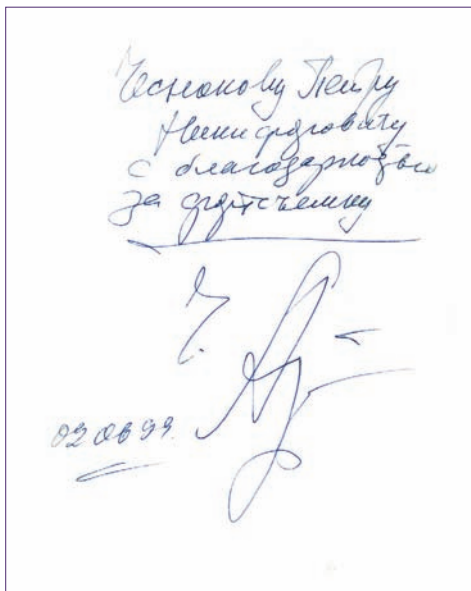 Чеснокову Петру
Никифоровичу
с благодарностью
за фотосъемку
02 06 99.